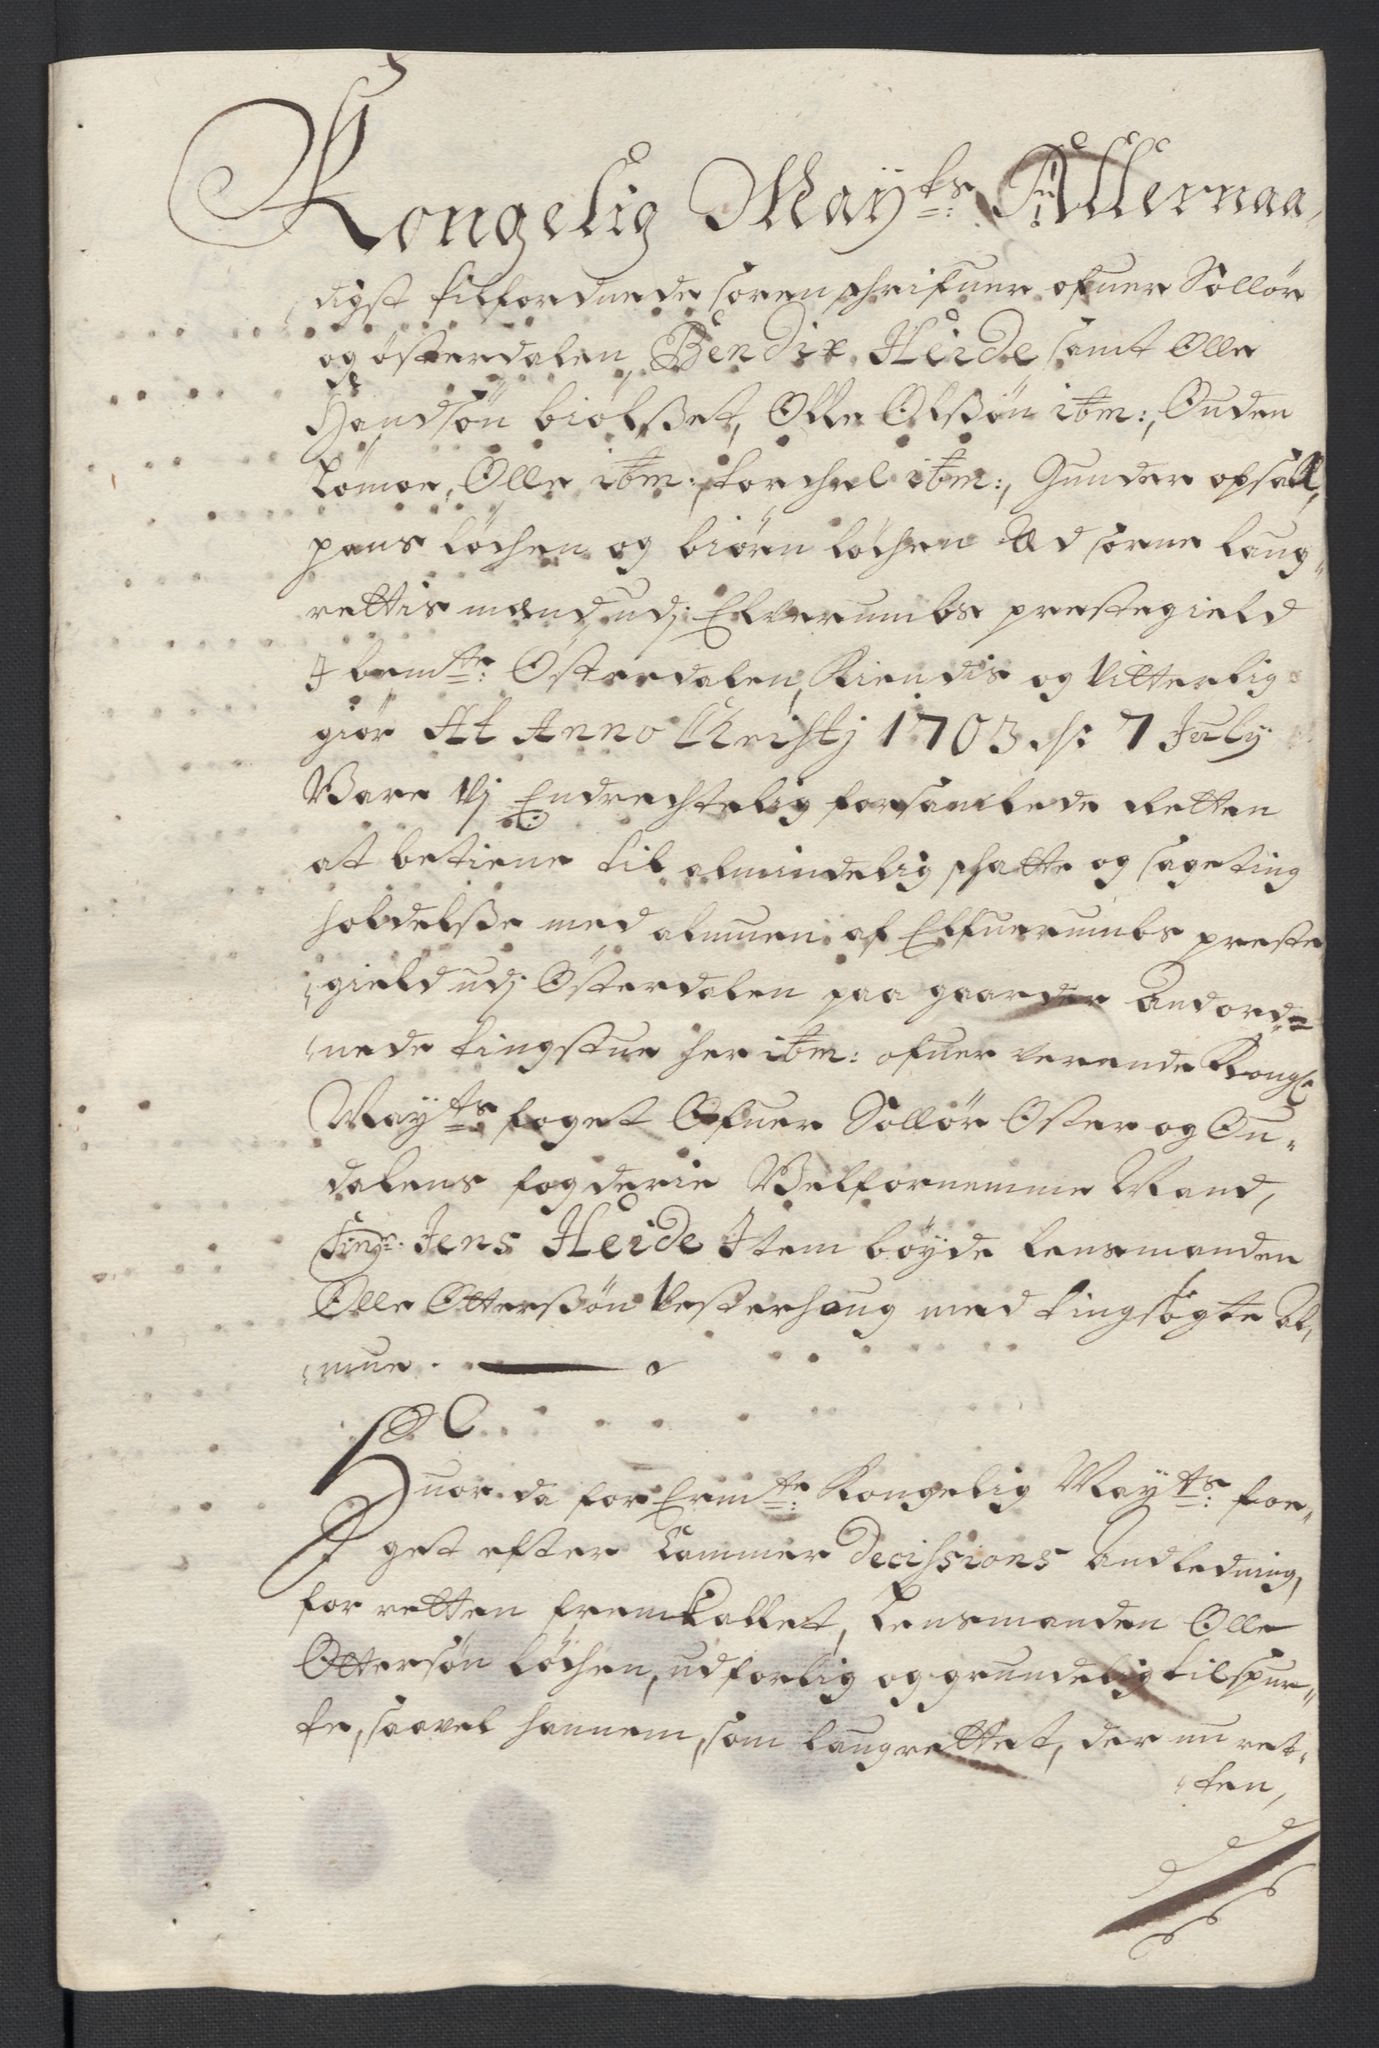 Kongelig Maÿts: Allernaa,
digst tilfordnede sorenschrifuer ofuer Sollør
og østerdalen, Bendix Heide samt Olle
Handsøn biølset, Olle Olsßøn itm:, Ouden
Lømoe, Olle itm:, torchel itm:, Gunder opsall,
hans Løchen og biørn Løchen Ed sorne laug„
rettis mænd, udj: Elverumbs prestegield
I bemte: Østerdalen, Kiendis og vitterlig
giør At Anno Christj 1703 d: 7 July
Vare vj Endrechtelig forsamlede Retten
at betiene til almindelig schatte og sageting
holdelße med almuen af Elfuerumbs preste
gield udj Østerdalen paa gaarden Andord„
nede tingstue her itm: ofuer verende Kongl:
Mayts: foget Ofuer Sollør Øster og Ou„
dalens fogderie Velfornemme Mand,
Sr: Jens Heide Item böyde lensmanden
Olle Otterßøn Vesterhaug med tingsøgte Al,
mue.
Huor da for Ermte: Kongelig Mayts: for„
get efter Cammer Decissions Andledning,
for retten fremkallet, Lensmanden Olle
Ottersøn Løchen, udforlig og grundelig tilspur„
te, saavel hannem, som laugrettet, der nu ret„
ten,